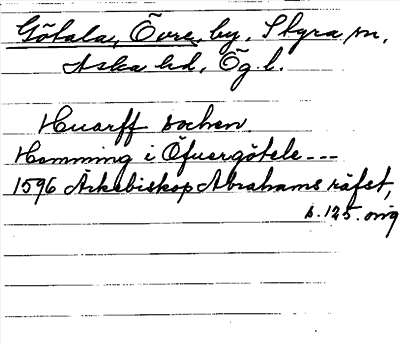 Götala, Övre, by, Skyra sn,
Aska hd, Ög l.
Huarff sochen
Hemming i Öfuergötele ---
1596 Ärkebiskop Abrahams räfst,
s. 125. orig